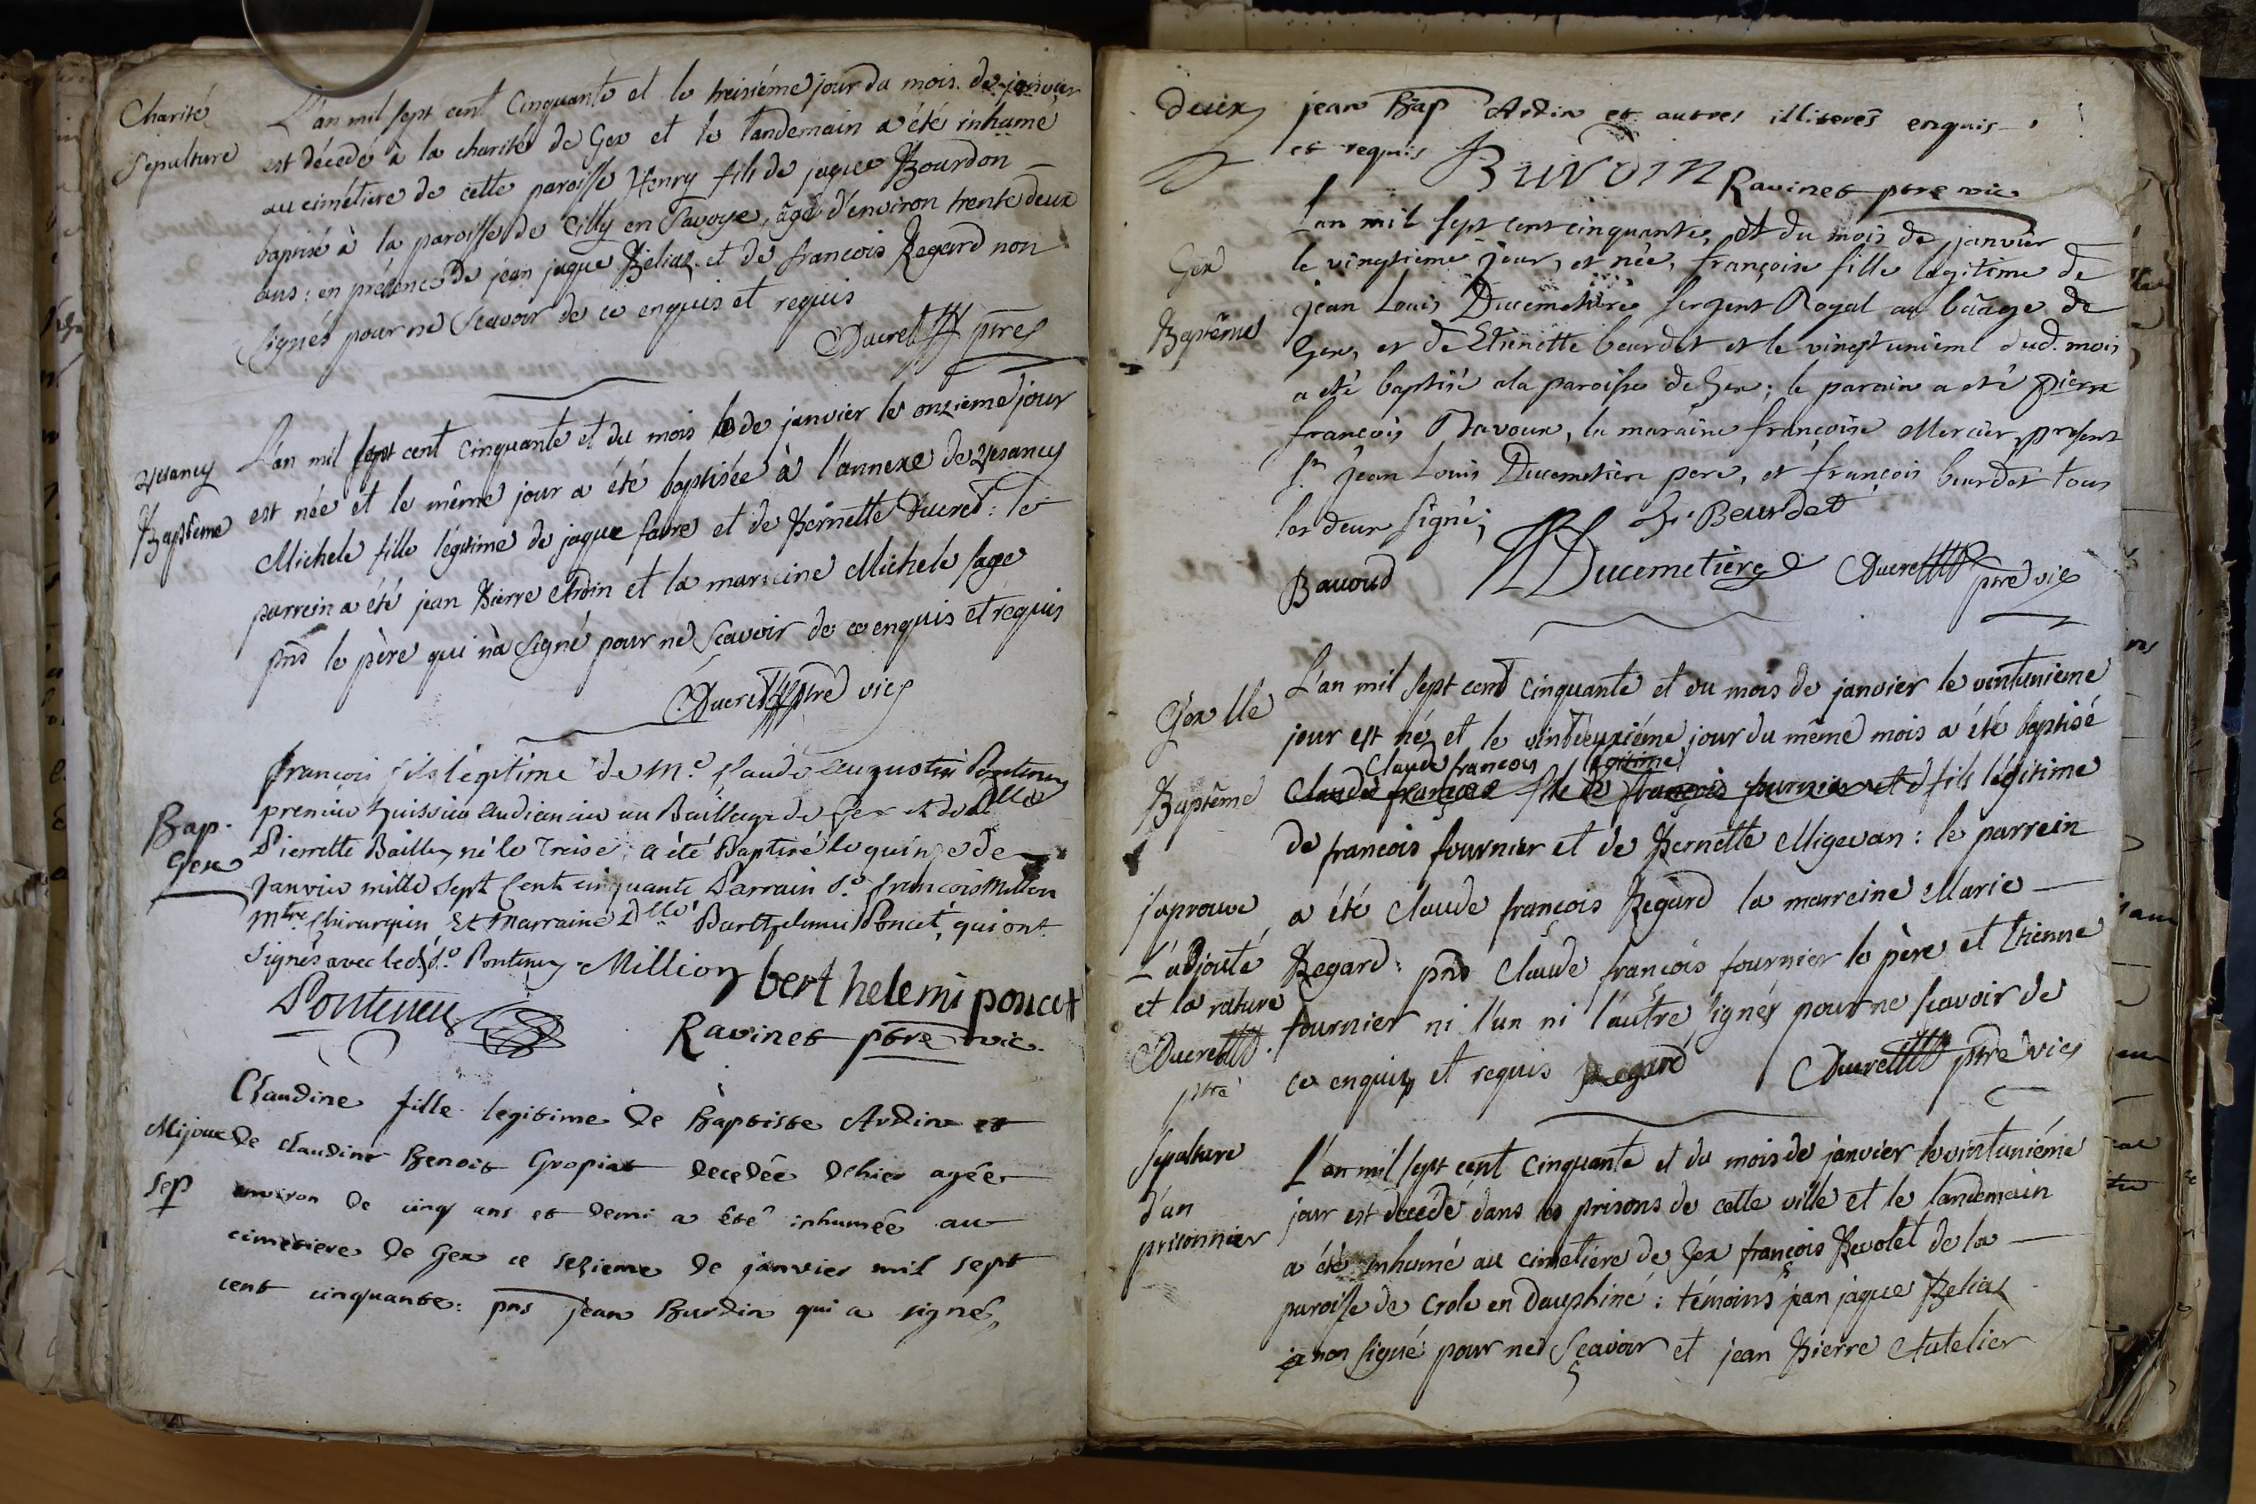 Charité
Sepulture
L'an mil sept cent cinquante et le treisiéme jour du mois de janvier
est décedé à la charité de Gex et le landemain a été inhumé
au cimétiere de cette paroisse Henry fils de jaque Bourdon
baptisé à la paroisse de Cilly en Savoye, âgé d'environ trente deux
ans : en présence de jean jaque Belias et de francois Regard non
signés pour ne sçavoir de ce enquis et requis
Ducret ptre
Vesancy
Baptême
L'an mil sept cent cinquante et du mois de janvier le onzieme jour
est née et le même jour a été baptisée à l'annexe de vesancy
Michele fille légitime de jaque favre et de Pernette Ducret : le
parrein a été jean Pierre Ardin et la marreine Michele sage
pnt le père qui n'a signé pour ne scavoir de ce enquis et requis
Ducret ptre vic
Bap.
Gex
françois fils légitime de Me. Claude augustin Pontenu
premier huissier audiancier au Bailliage de Gex et de dlle
Pierrette Bailly né le Treise, a été Baptisé le quinze de
Janvier mille sept Cent cinquante Parrain Sr. francois Million
Mtre. Chirurgien Et Marraine Dlle. Barthelemie Poncet, qui ont
signés avec led. Sr. Pontenu Million
berthelemi poncet
Pontenu
Ravinet ptre vic.
Mijoux
sep
Claudine fille legitime de Baptiste Ardin et
de claudine Benoit Gropiat decedée d'hier agée
environ de cinq ans et demi a été inhumée au
cimetiere de Gex ce sezieme de janvier mil sept
cent cinquante : pns jean Burdin qui a signé,
deux
jean Bap Ardin et autres illiterés enquis
et requis Burdin Ravinet ptre vic
Gex
Baptême
L'an mil sept cent cinquante, et du mois de janvier
le vingtieme jour, est née, françoise fille legitime de
jean Louis Ducemetiere sergent Royal au bâage de
Gex, et de Etienette beurdet et le vingt unieme dud. mois
a été baptisé a la paroisse de Gex ; le parain a eté pierre
francois Bavoux, la maraine françoise Mercier, present
Sr. jean Louis Ducemetiere pere, et françois beurdet tous
les deux signé ;
f. Beurdet
Bavoud
Ducemetiere
Ducret ptre vic
Gex lle
Baptême
L'an mil sept cent cinquante et du mois de janvier le vintunieme
jour est né, et le vintdeuxiéme jour du même mois a été baptisé
Claude francois légitime
Claude françois fils de françois fournier et d fils légitime
de francois fournier et de Pernette Migevan : le parrein
a été Claude françois Regard la marreine Marie
Regard : pns Claude françois fournier le père et Etienne
fournier ni l'un ni l'autre signés pour ne scavoir de
ce enquis et requis Regard Ducret ptre vic
j'aprouve
l'adjouté
et la rature
Ducret
ptre
Sepulture
d'un
prisonnier
L'an mil sept cent cinquante et du mois de janvier le vintuniéme
jour est décédé dans les prisons de cette ville et le landemain
a été inhumé au cimetiere de Gex françois Revolet de la
paroisse de Crole en Dauphiné : témoins jean jaque Belias
non signé pour ne sçavoir et jean Pierre Autelier